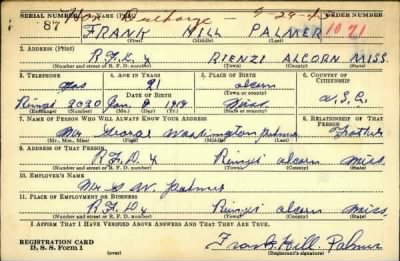 SERIAL NUMBER 1. NAME (Print) ORDER NUMBER
87 Hon Discharge - 9-29-45
FRANK HILL PALMER 1071
(First) (Middle) (Last)
2. ADDRESS (Print)
R.F.D. 4 RIENZI ALCORN MISS.
(Number and street or R. F. D. number) (Town) (County) (State)
3. TELEPHONE 4. AGE IN YEARS 5. PLACE OF BIRTH 6. COUNTRY OF CITIZENSHIP
21 Alcorn
(Town or county)
Rienzi 2020 Jan 8 1919 Miss. U.S.A.
(Exchange) (Number) (Mo.) (Day) (Yr.) (State or country)
7. NAME OF PERSON WHO WILL ALWAYS KNOW YOUR ADDRESS 8. RELATIONSHIP OF THAT PERSON
Mr George Washington Palmer Father
(Mr., Mrs., Miss) (First) (Middle) (Last)
9. ADDRESS OF THAT PERSON
R.F.D. 4 Rienzi Alcorn Miss.
(Number and street or R. F. D. number) (Town) (County) (State)
10. EMPLOYER'S NAME
Mr G. W. Palmer
11. PLACE OF EMPLOYMENT OR BUSINESS
R.F.D. 4 Rienzi Alcorn Miss.
(Number and street or R. F. D. number) (Town) (County) (State)
I AFFIRM THAT I HAVE VERIFIED ABOVE ANSWERS AND THAT THEY ARE TRUE.
REGISTRATION CARD
D. S. S. Form 1 (over) Frank Hill Palmer
(Registrant's signature)